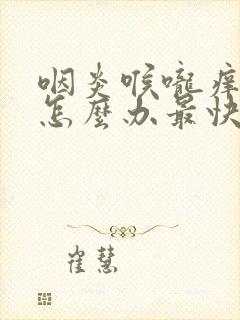 咽炎喉嚨痒
怎麼办最快
崔慧